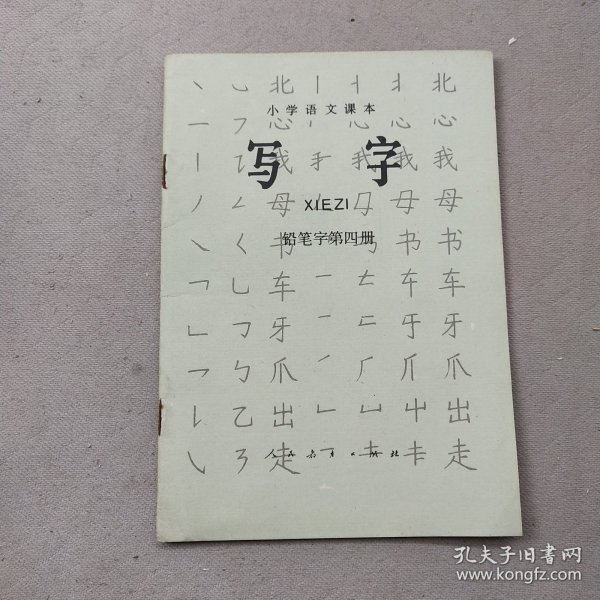 小学语文课本
写字
XIEZI
铅笔字第四册
人民教育出版社
丶 ㇃ 北 丨 丬 北 北
一 ㇇ 心 心 心
丨 ㇊ 我 我 我 我
丿 ㇜ 母 母 母
㇏ ㇛ 书 书 书
㇕ ㇗ 车 一 𠂉 车 车
㇗ ㇆ 牙 一 于 牙
㇖ ㄣ 爪 丿 厂 爪 爪
㇙ 乙 出 ㇗ 凵 屮 出
㇂ ㇌ 走 走
孔夫子旧书网
www.kongfz.com